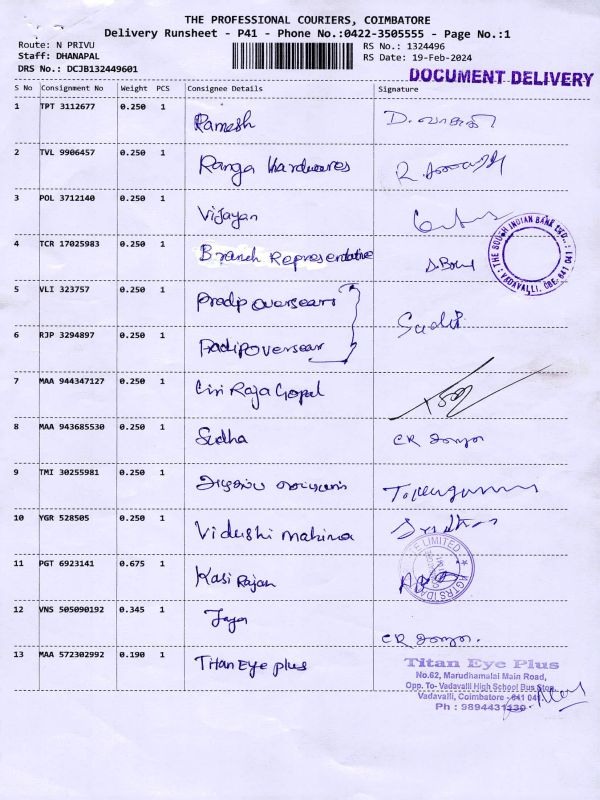 THE PROFESSIONAL COURIERS, COIMBATORE
Delivery Runsheet - P41 - Phone No.:0422-3505555 - Page No.:1
Route: N PRIVU
RS No.: 1324496
Staff: DHANAPAL
RS Date: 19-Feb-2024
DRS No.: DCJB132449601
DOCUMENT DELIVERY
S No Consignment No Weight PCS Consignee Details Signature
1 TPT 3112677 0.250 1 Ramesh
2 TVL 9906457 0.250 1 Ranga Hardwares
3 POL 3712140 0.250 1 Vijayan
4 TCR 17025983 0.250 1 Branch Representative
THE SOUTH INDIAN BANK LTD.,
VADAVALLI, CBE-641 041
5 VLI 323757 0.250 1 Pradip oversears
6 RJP 3294897 0.250 1 Pradip oversear
7 MAA 944347127 0.250 1 Giri Raja Gopal
8 MAA 943685530 0.250 1 Sudha
9 TMI 30255981 0.250 1
10 YGR 528505 0.250 1 Vidushi mahima
11 PGT 6923141 0.675 1 Kasi Rajan
LIMITED
12 VNS 505090192 0.345 1 Jaya
13 MAA 572302992 0.190 1 Titan Eye plus
Titan Eye Plus
No.62, Marudhamalai Main Road,
Opp. To- Vadavalli High School Bus Stop,
Vadavalli, Coimbatore - 641 041
Ph : 9894431130